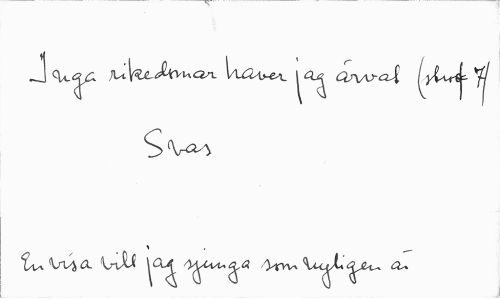 Inga rikedomar haver jag ärvat (strof 7)
Svas
En visa vill jag sjunga som nyligen är